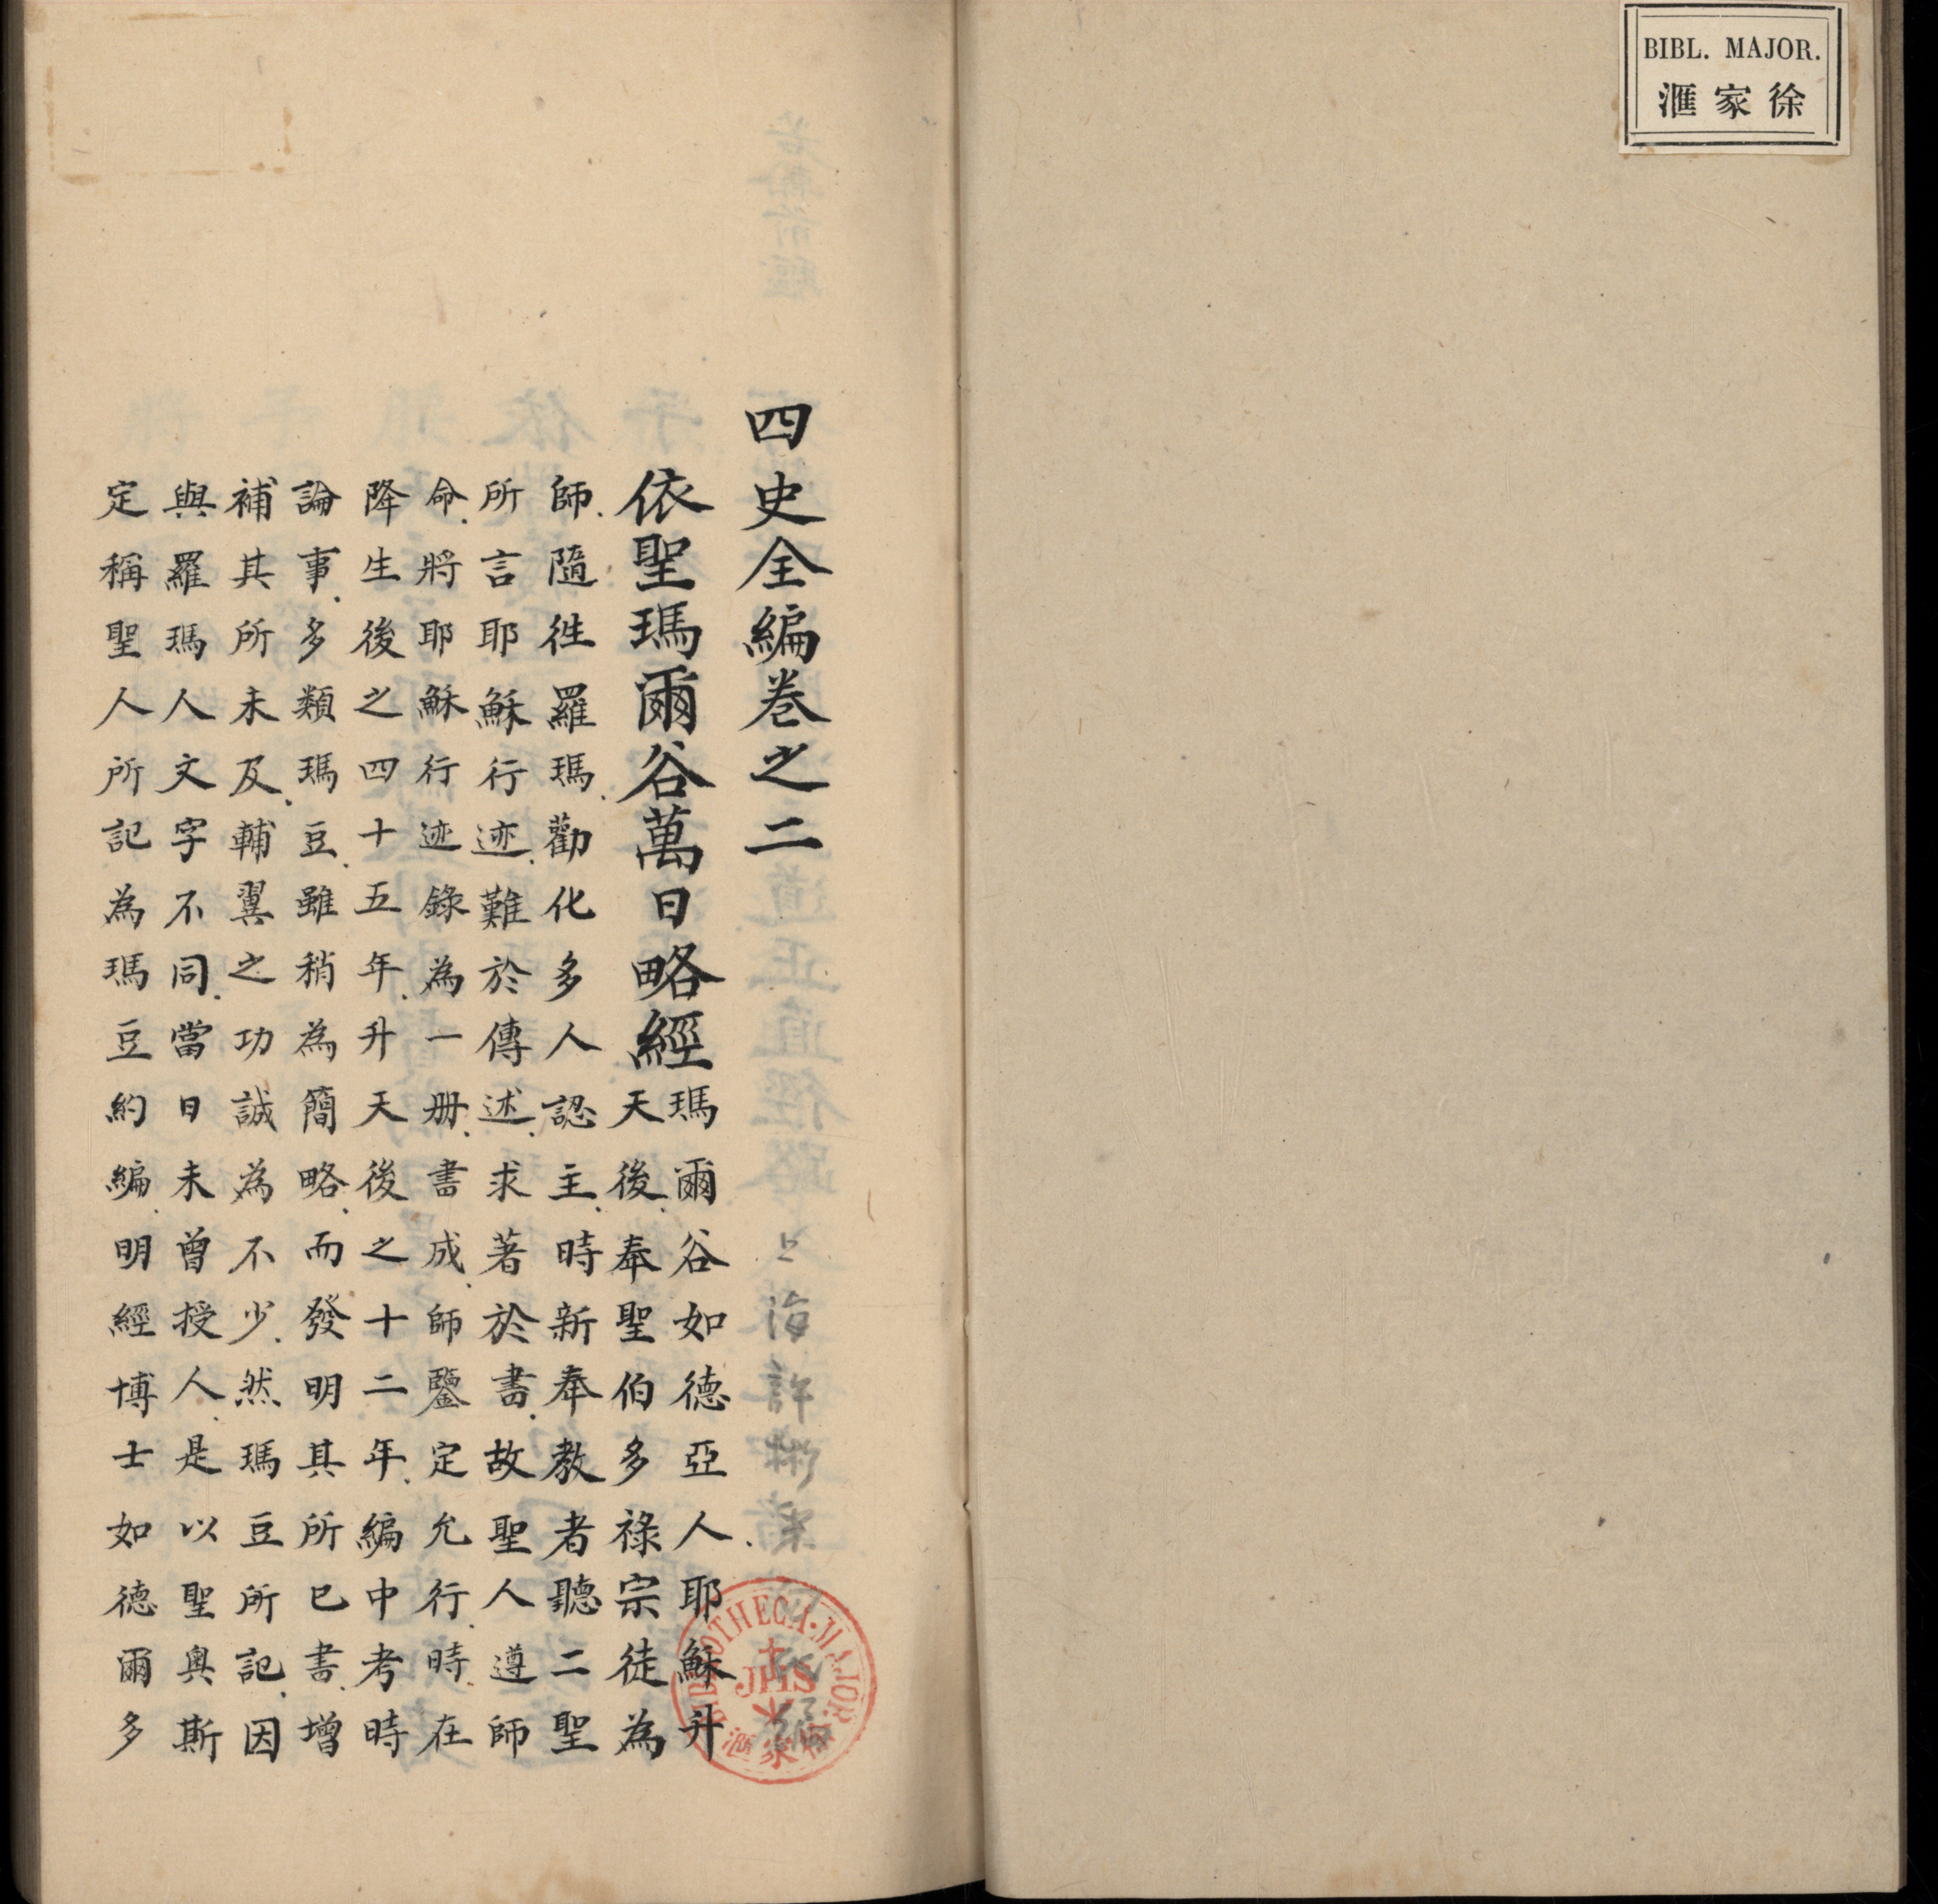 BIBL. MAJOR.
滙家徐
四史全編卷之二
上海許彬采白編
依聖瑪爾谷萬日略經
瑪爾谷如德亞人耶穌升
天後奉聖伯多祿宗徒為
師隨徃羅瑪勸化多人認主時新奉教者聽二聖
所言耶穌行迹難於傳述求著於書故聖人遵師
命將耶穌行迹錄為一册書成師鑒定允行時在
降生後之四十五年升天後之十二年編中考時
論事多類瑪豆雖稍為簡略而發明其所已書增
補其所未及輔翼之功誠為不少然瑪豆所記因
與羅瑪人文字不同當日未曾授人是以聖奥斯
定稱聖人所記為瑪豆約編明經博士如德爾多
BIBLIOTHECA·MAJOR·
JHS
滙家徐